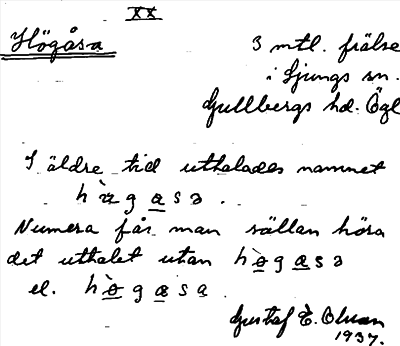 XX
Högåsa
3 mtl. frälse
i Ljungs sn.
Gullbergs hd. Ögl
I äldre tid uttalades namnet
.
Numera får man sällan höra
det uttalet utan
el.
Gustaf E.
1937.